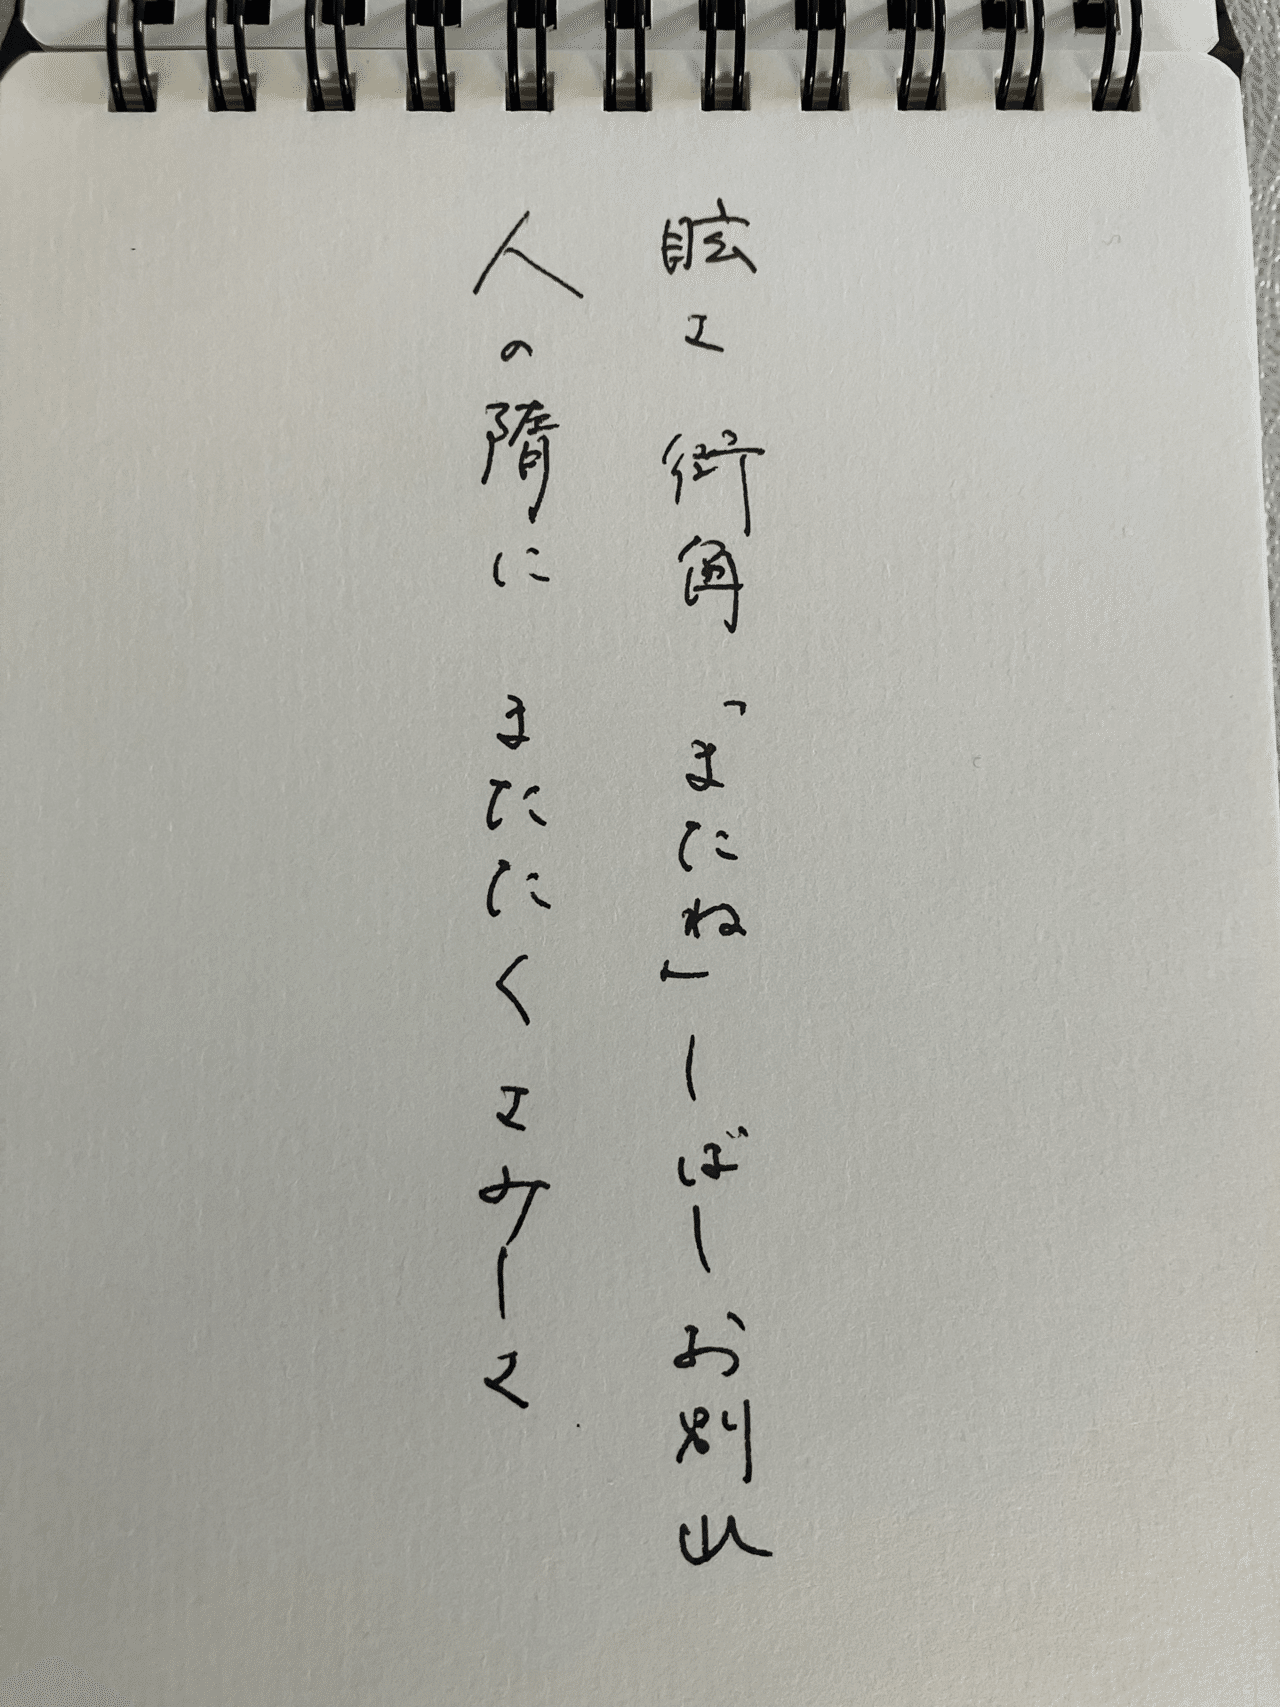 眩さ 街角 「またね」しばしお別れ
人の隋に またたくさみしさ